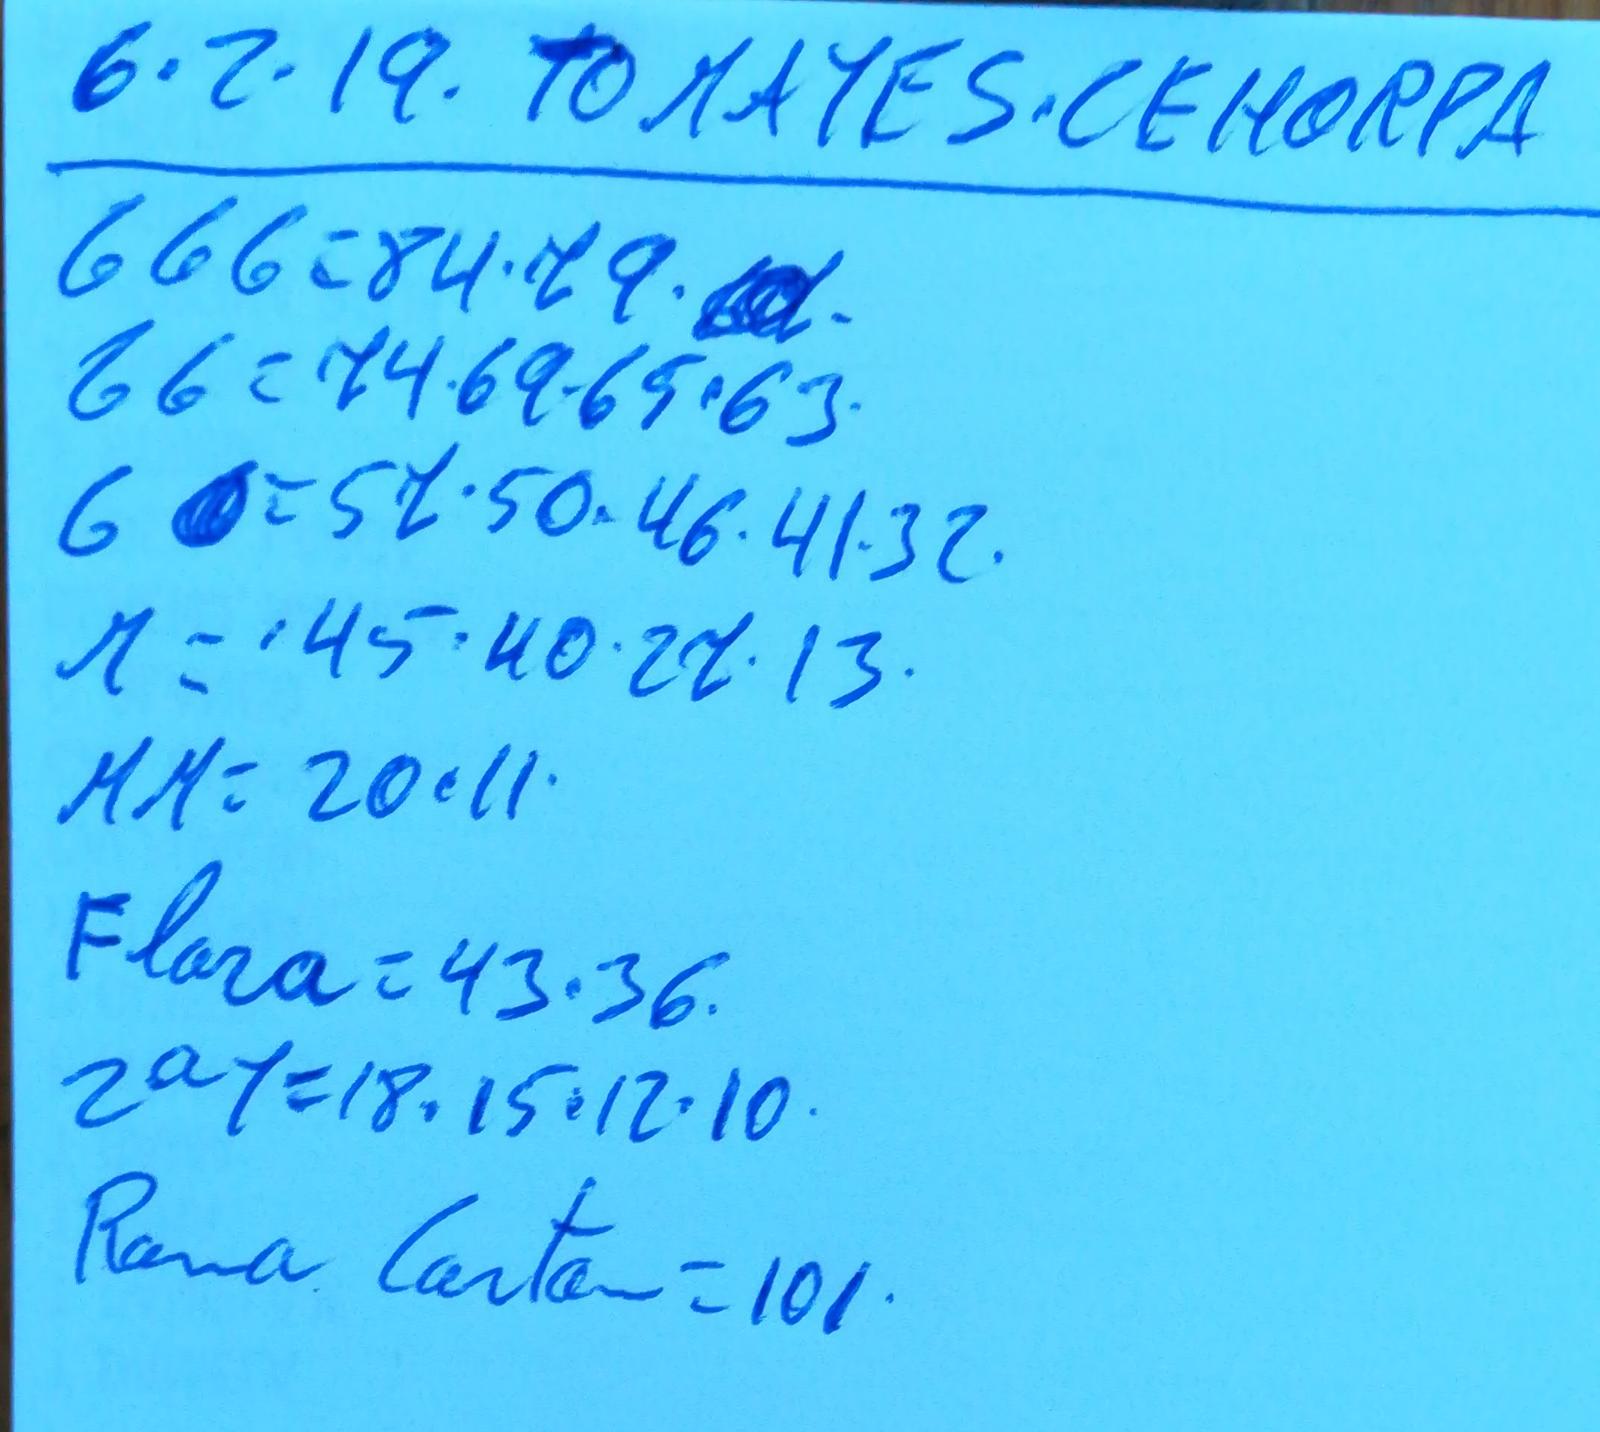 6.2.19. TOMAYES.CEHORPA
666=84.79.
66=74.69.65.63.
6=57.50.46.41.32.
M=.45.40.27.13.
MM=20.11.
Flora=43.36.
2ªY=18.15.12.10.
Rama Cortan=101.